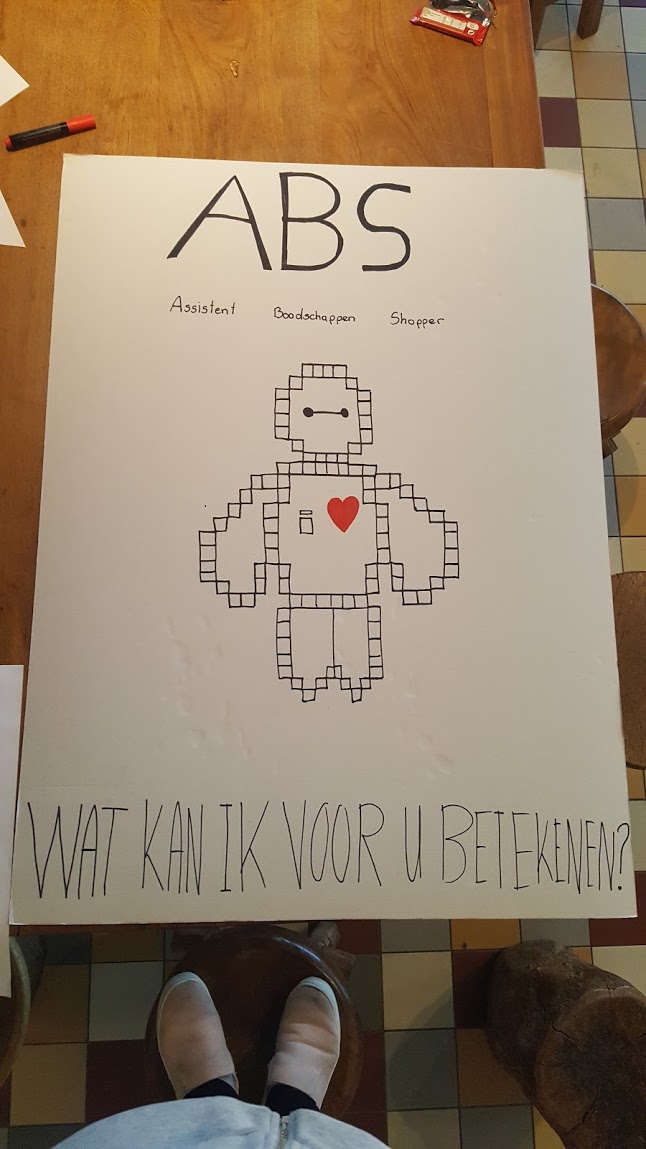 ABS
Assistent Boodschappen Shopper
WAT KAN IK VOOR U BETEKENEN?